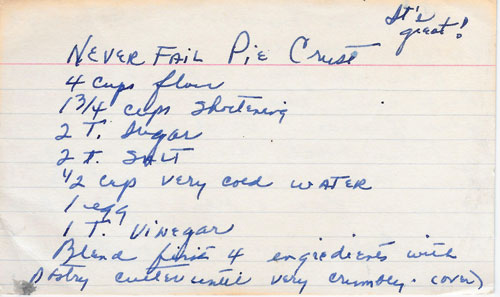 It's
great!
Never Fail Pie Crust
4 cups flour
1 3/4 cups shortening
2 T. sugar
2 t. SALT
1/2 cup very cold WATER
1 egg
1 T. Vinegar
Blend first 4 engredients with
pastry cutter until very crumbly. (over)